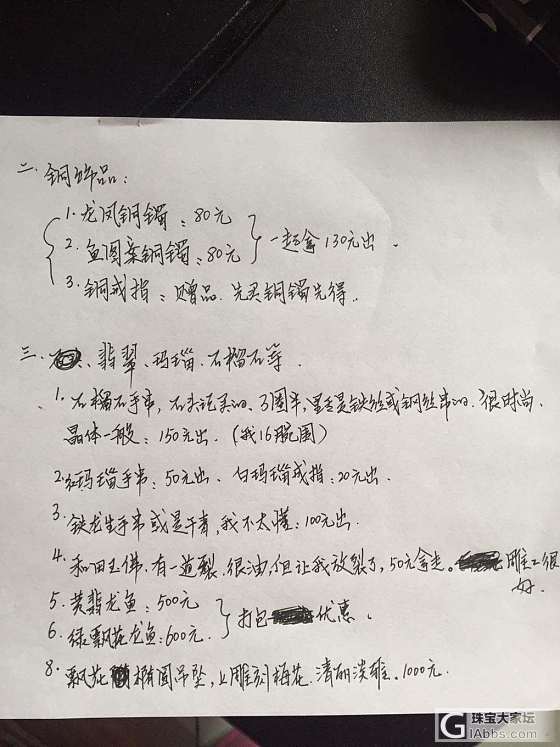 二、铜饰品：
1. 龙凤铜镯：80元
2. 鱼图案铜镯：80元
一起拿130元出.
3. 铜戒指：赠品. 先买铜镯先得.
三、翡翠、玛瑙、石榴石等.
1. 石榴石手串，石头记买的、3圈半，里面是铁丝或钢丝串的、很时尚、
晶体一般：150元出. (我16腕围)
2. 红玛瑙手串：50元出、白玛瑙戒指：20元出.
3. 铁龙生手串或是干青，我不太懂：100元出.
4. 和田玉佛. 有一道裂. 很油，但让我放裂了，50元拿走。雕工很
好.
5. 黄翡龙鱼：500元
6. 绿飘花龙鱼：600元.
打包优惠.
8. 飘花椭圆吊坠，上雕刻梅花. 清丽淡雅。1000元.
珠宝大家坛
GIAbbs.com